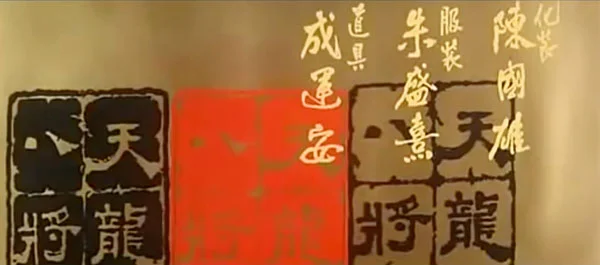 化裝
陳國雄
服裝
朱盛熹
道具
成運安
天龍
八將
天龍
八將
天龍
八將